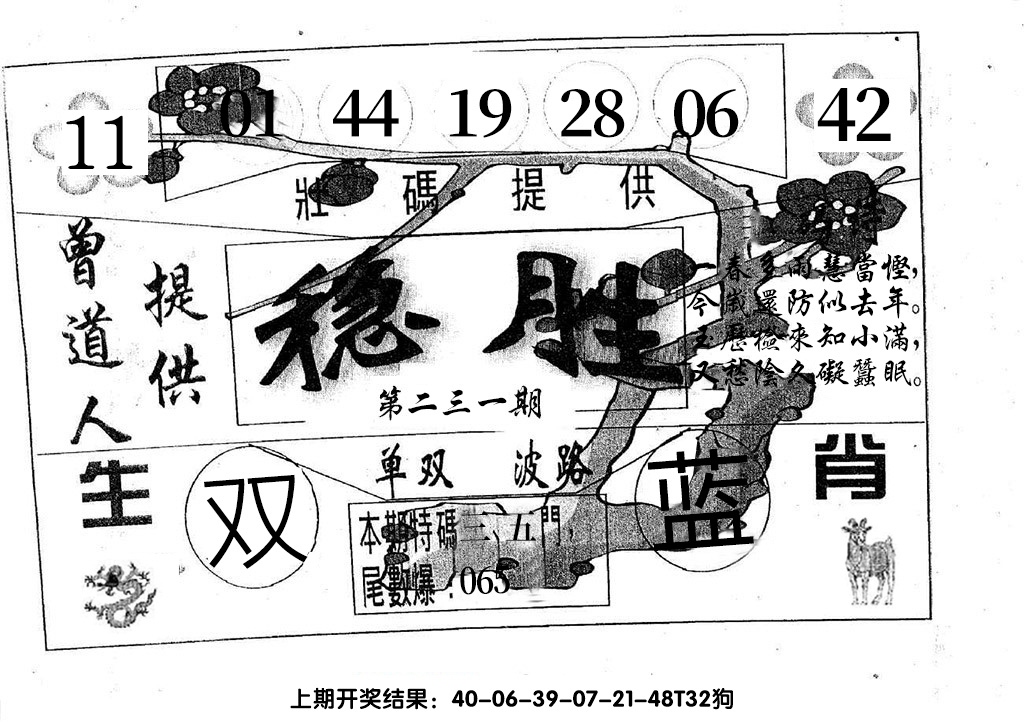 11 01 44 19 28 06 42
壯碼提供
特
曾道人
提供
稳胜
第二三一期
春多雨慧當慳，
今歲還防似去年。
玉歷檢來知小滿，
又愁陰久礙蠶眠。
单双 波路
生肖
双
蓝
本期特碼三、五門，
尾數爆：065
上期开奖结果：40-06-39-07-21-48T32狗